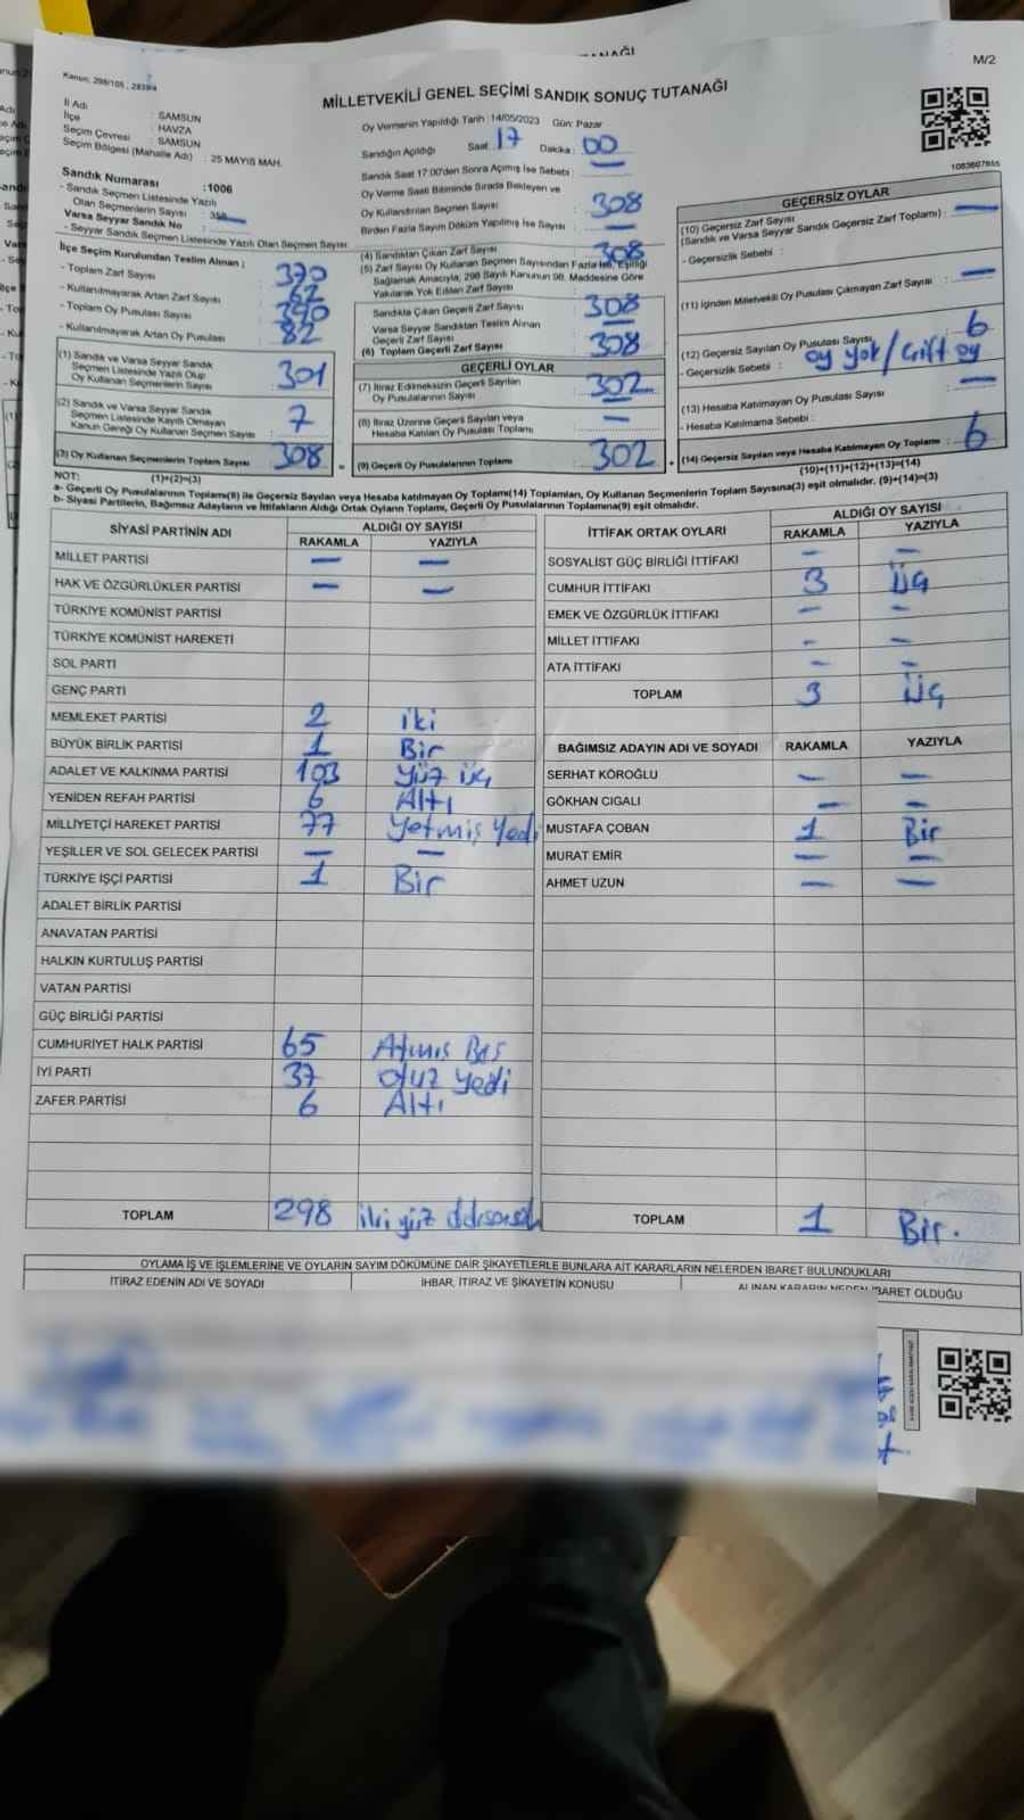 M/2
Kanun: 298/105 , 2839/4
MİLLETVEKİLİ GENEL SEÇİMİ SANDIK SONUÇ TUTANAĞI
İl Adı : SAMSUN
İlçe : HAVZA
Seçim Çevresi : SAMSUN
Seçim Bölgesi (Mahalle Adı) : 25 MAYIS MAH.
Sandık Numarası : 1006
- Sandık Seçmen Listesinde Yazılı
Olan Seçmenlerin Sayısı :
Varsa Seyyar Sandık No —
- Seyyar Sandık Seçmen Listesinde Yazılı Olan Seçmen Sayısı
İlçe Seçim Kurulundan Teslim Alınan ;
- Toplam Zarf Sayısı 370
- Kullanılmayarak Artan Zarf Sayısı 62
- Toplam Oy Pusulası Sayısı
- Kullanılmayarak Artan Oy Pusulası 82
(1) Sandık ve Varsa Seyyar Sandık
Seçmen Listesinde Yazılı Olup
Oy Kullanan Seçmenlerin Sayısı 301
(2) Sandık ve Varsa Seyyar Sandık
Seçmen Listesinde Kayıtlı Olmayan
Kanun Gereği Oy Kullanan Seçmen Sayısı 7
(3) Oy Kullanan Seçmenlerin Toplam Sayısı 308
Oy Vermenin Yapıldığı Tarih : 14/05/2023 Gün: Pazar
Sandığın Açıldığı Saat : 17 Dakika : 00
Sandık Saat 17:00'den Sonra Açılmış İse Sebebi : —
Oy Verme Saati Bitiminde Sırada Bekleyen ve
Oy Kullandırılan Seçmen Sayısı : 308
Birden Fazla Sayım Döküm Yapılmış İse Sayısı : —
(4) Sandıktan Çıkan Zarf Sayısı : 308
(5) Zarf Sayısı Oy Kullanan Seçmen Sayısından Fazla İse, Eşitliği
Sağlamak Amacıyla, 298 Sayılı Kanunun 98. Maddesine Göre
Yakılarak Yok Edilen Zarf Sayısı
Sandıkta Çıkan Geçerli Zarf Sayısı : 308
Varsa Seyyar Sandıktan Teslim Alınan
Geçerli Zarf Sayısı : —
(6) Toplam Geçerli Zarf Sayısı : 308
GEÇERLİ OYLAR
(7) İtiraz Edilmeksizin Geçerli Sayılan
Oy Pusulalarının Sayısı : 302
(8) İtiraz Üzerine Geçerli Sayılan veya
Hesaba Katılan Oy Pusulası Toplamı : —
(9) Geçerli Oy Pusulalarının Toplamı : 302
1083607855
GEÇERSİZ OYLAR
(10) Geçersiz Zarf Sayısı
(Sandık ve Varsa Seyyar Sandık Geçersiz Zarf Toplamı) : —
- Geçersizlik Sebebi :
(11) İçinden Milletvekili Oy Pusulası Çıkmayan Zarf Sayısı : —
(12) Geçersiz Sayılan Oy Pusulası Sayısı : 6
- Geçersizlik Sebebi : oy yok / Çift oy
(13) Hesaba Katılmayan Oy Pusulası Sayısı : —
- Hesaba Katılmama Sebebi :
(14) Geçersiz Sayılan veya Hesaba Katılmayan Oy Toplamı : 6
NOT: (1)+(2)=(3) (10)+(11)+(12)+(13)=(14)
a- Geçerli Oy Pusulalarının Toplamı(9) ile Geçersiz Sayılan veya Hesaba katılmayan Oy Toplamı(14) Toplamları, Oy Kullanan Seçmenlerin Toplam Sayısına(3) eşit olmalıdır. (9)+(14)=(3)
b- Siyasi Partilerin, Bağımsız Adayların ve İttifakların Aldığı Ortak Oyların Toplamı, Geçerli Oy Pusulalarının Toplamına(9) eşit olmalıdır.
SİYASİ PARTİNİN ADI ALDIĞI OY SAYISI
RAKAMLA YAZIYLA
MİLLET PARTİSİ — —
HAK VE ÖZGÜRLÜKLER PARTİSİ — —
TÜRKİYE KOMÜNİST PARTİSİ
TÜRKİYE KOMÜNİST HAREKETİ
SOL PARTİ
GENÇ PARTİ
MEMLEKET PARTİSİ 2 iki
BÜYÜK BİRLİK PARTİSİ 1 Bir
ADALET VE KALKINMA PARTİSİ 103 Yüz üç
YENİDEN REFAH PARTİSİ 6 Altı
MİLLİYETÇİ HAREKET PARTİSİ 77 Yetmiş Yedi
YEŞİLLER VE SOL GELECEK PARTİSİ — —
TÜRKİYE İŞÇİ PARTİSİ 1 Bir
ADALET BİRLİK PARTİSİ
ANAVATAN PARTİSİ
HALKIN KURTULUŞ PARTİSİ
VATAN PARTİSİ
GÜÇ BİRLİĞİ PARTİSİ
CUMHURİYET HALK PARTİSİ 65 Atmış Beş
İYİ PARTİ 37 Otuz yedi
ZAFER PARTİSİ 6 Altı
TOPLAM 298 iki yüz
İTTİFAK ORTAK OYLARI ALDIĞI OY SAYISI
RAKAMLA YAZIYLA
SOSYALİST GÜÇ BİRLİĞİ İTTİFAKI — —
CUMHUR İTTİFAKI 3 Üç
EMEK VE ÖZGÜRLÜK İTTİFAKI — —
MİLLET İTTİFAKI — —
ATA İTTİFAKI — —
TOPLAM 3 Üç
BAĞIMSIZ ADAYIN ADI VE SOYADI RAKAMLA YAZIYLA
SERHAT KÖROĞLU — —
GÖKHAN CIGALI — —
MUSTAFA ÇOBAN 1 Bir
MURAT EMİR — —
AHMET UZUN — —
TOPLAM 1 Bir.
OYLAMA İŞ VE İŞLEMLERİNE VE OYLARIN SAYIM DÖKÜMÜNE DAİR ŞİKAYETLERLE BUNLARA AİT KARARLARIN NELERDEN İBARET BULUNDUKLARI
İTİRAZ EDENİN ADI VE SOYADI İHBAR, İTİRAZ VE ŞİKAYETİN KONUSU ALINAN KARARIN NEDEN İBARET OLDUĞU